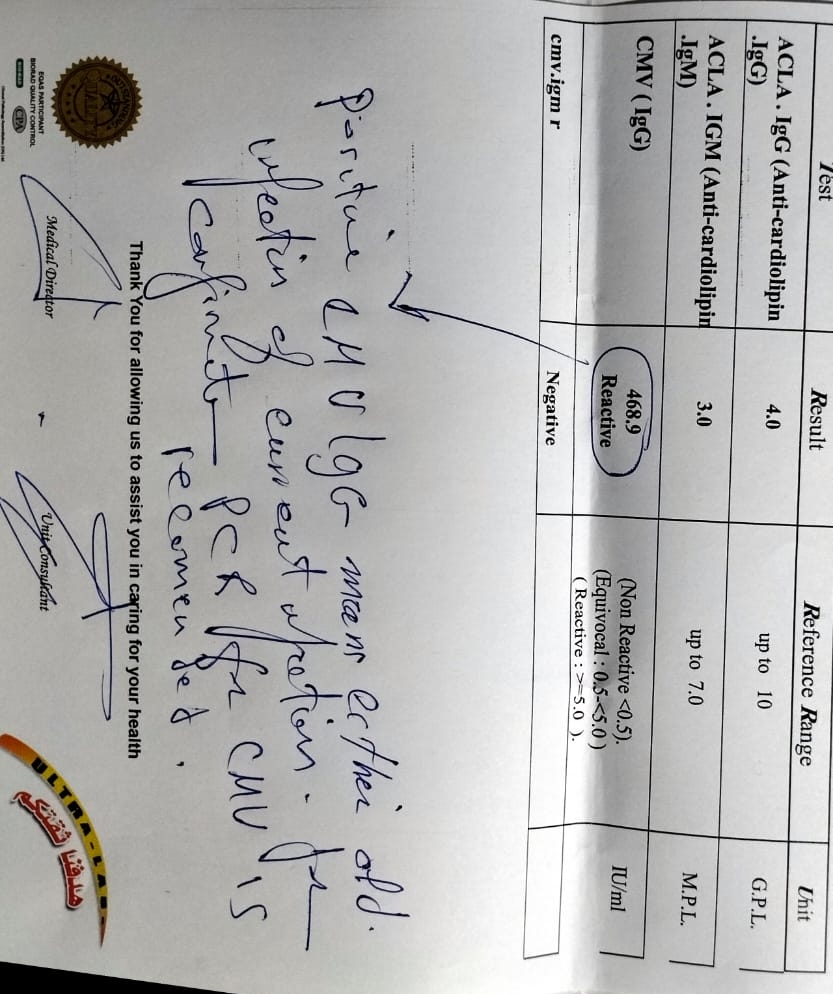 Test Result Reference Range Unit
ACLA . IgG (Anti-cardiolipin .IgG) 4.0 up to 10 G.P.L.
ACLA . IGM (Anti-cardiolipin .IgM) 3.0 up to 7.0 M.P.L.
CMV ( IgG) 468.9 Reactive (Non Reactive <0.5). (Equivocal : 0.5-<5.0 ) ( Reactive : >=5.0 ). IU/ml
cmv.igm r Negative
Positive CMV IgG means either old
infection of current infection. for
PCR for CMV is
recomended.
Thank You for allowing us to assist you in caring for your health
Medical Director Unit Consultant
QUALITY
EQAS PARTICIPANT
BIORAD QUALITY CONTROL
CPA
ULTRA-LAB
هدفنا ثقتكم